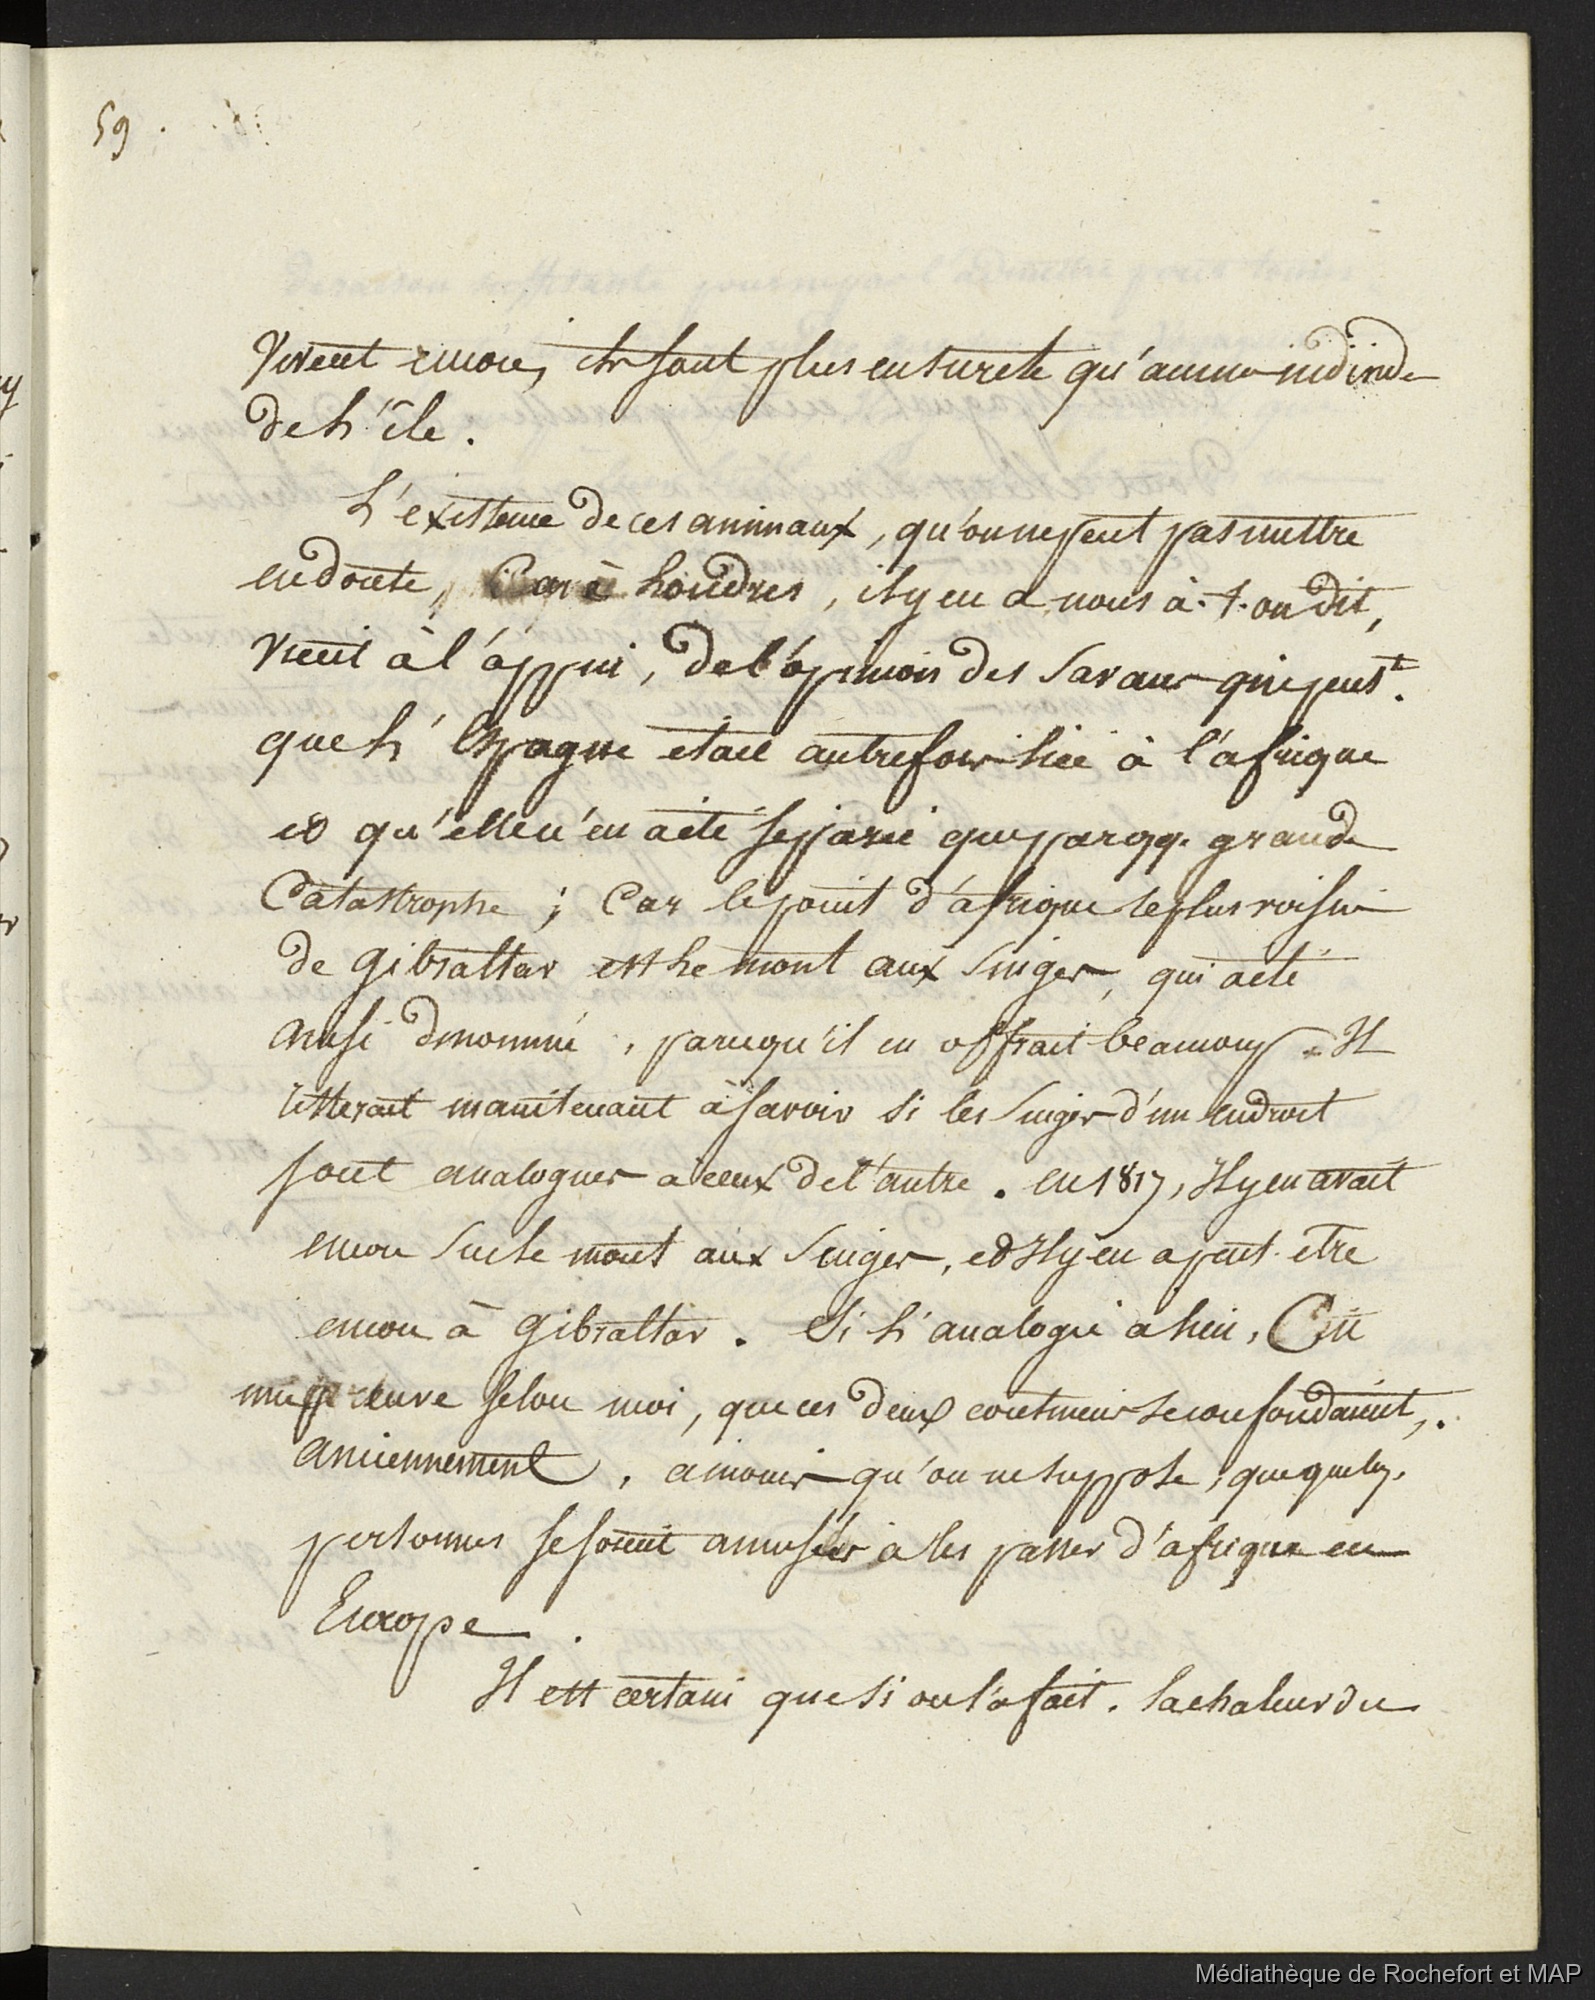 59.
vivent encore, et sont plus en sureté qu'aucun individu
de l'île.
L'existence de ces animaux, qu'on ne peut pas mettre
en doute, Car à Londres, il y en a nous a-t-on dit,
vient à l'appui, de l'opinion des savans qui pens.t
que l'Espagne était autrefois liée à l'afrique
et qu'elle n'en a été séparée que par qq. grande
Catastrophe ; Car le point d'afrique le plus voisin
de Gibraltar est le mont aux Singes, qui a été
ainsi dénommé, parcequ'il en offrait beaucoup. Il
resterait maintenant à savoir si les Singes d'un endroit
sont analogues à ceux de l'autre. En 1817, Il y en avait
encore sur le mont aux Singes, et Il y en a peut-être
encore à Gibraltar. Si l'analogie a lieu, C'est
une preuve selon moi, que ces deux continens se confondaient,
anciennement, à moins qu'on ne suppose, que quelq.
personnes se soient amusées à les passer d'afrique en
Europe.
Il est certain que si on l'a fait. la chaleur du
Médiathèque de Rochefort et MAP